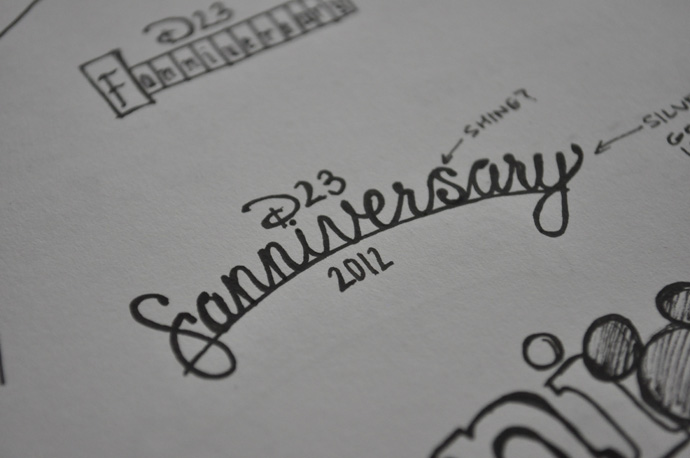 D23
Fanniversary
SHINE?
D23
Fanniversary
2012
ni